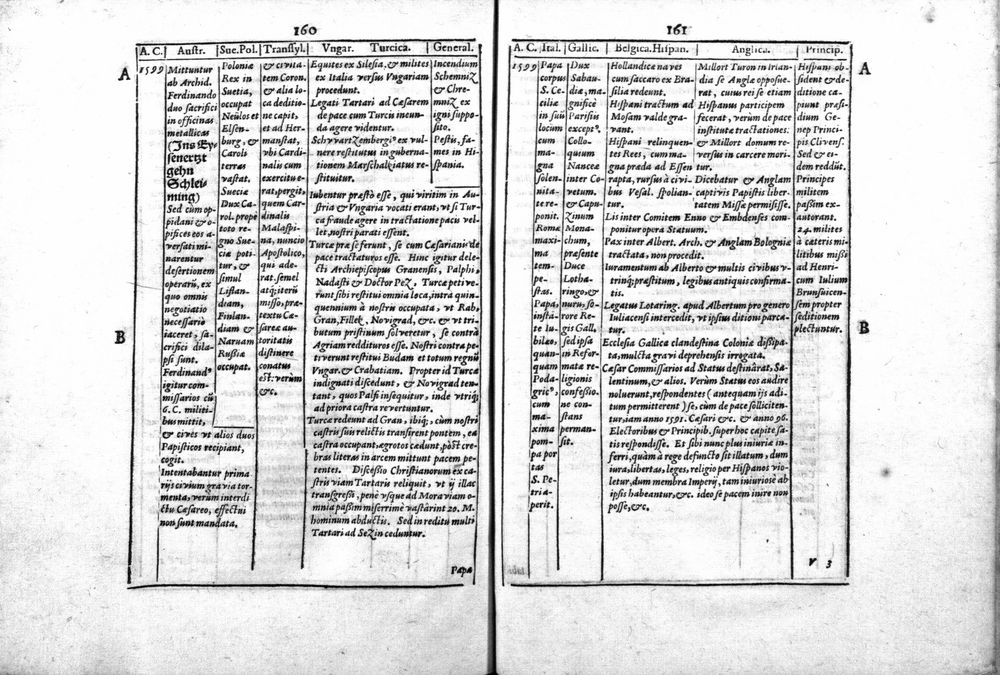 160
A. C. Austr. Sue.Pol. Transsyl. Vngar. Turcica. General.
A
1599
Mittuntur
ab Archid.
Ferdinando
duo sacrifici
in officinas
metallicas
(Ins Ey-
senertzt
gehn
Schlei-
ming)
Sed cum op-
pidani & o-
pifices eos a-
versati mi-
narentur
desertionem
operarū, ex
quo omnis
negotiatio
necessario
iaceret, sa-
crifici dila-
psi sunt.
Ferdinandꝰ
igitur com-
missarios cū
6. C. militi-
bus mittit,
& cives vt alios duos
Papisticos recipiant,
cogit.
Intentabantur prima-
rijs civium gravia tor-
menta, verum interdi
ctu Cæsareo, effectui
non sunt mandata.
B
Poloniæ
Rex in
Suetia,
occupat
Neülos et
Elsen-
burg, &
Caroli
terras
vastat.
Sueciæ
Dux Ca-
rol. prope
toto re-
gno Sue-
ciæ poti-
tur, &
simul
Liflan-
diam,
Finlan-
diam &
Naruam
Rußiæ
occupat.
& civita-
tem Coron.
& alia lo-
ca deditio-
ne capit,
et ad Her-
manstat,
vbi Cardi-
nalis cum
exercitu e-
rat, pergit,
quem Car-
dinalis
Malaspi-
na, nuncio
Apostolico,
qui ade-
rat, semel
atq; iterū
misso, præ-
textu Cæ-
sareæ au-
toritatis
distinere
conatus
est: verùm
&c.
Equites ex Silesia, & milites
ex Italia versus Vngariam
procedunt.
Legati Tartari ad Cæsarem
de pace cum Turcis ineun-
da agere videntur.
Schvvartzembergiꝰ ex vul-
nere restitutus in guberna-
tionem Marschalciatus re-
stituitur.
Iubentur præsto esse, qui viritim in Au-
stria & Vngaria vocati erant, vt si Tur-
ca fraude agere in tractatione pacis vel-
let, nostri parati essent.
Turcæ præ se ferunt, se cum Cæsarianis de
pace tractaturos esse. Hinc igitur dele-
cti Archiepiscopus Granensis, Palphi,
Nadasti & Doctor Pez. Turcæ petive-
runt sibi restitui omnia loca, intra quin-
quennium à nostris occupata, vt Rab,
Gran, Fillek, Novigrad, &c. & vt tri-
butum pristinum solveretur, se contrà
Agriam reddituros esse. Nostri contra pe-
tiverunt restitui Budam et totum regnū
Vngar. & Crabatiam. Propter id Turcæ
indignati discedunt, & Novigrad ten-
tant, quos Palfi insequitur, inde vtriq;
ad priora castra revertuntur.
Turcæ redeunt ad Gran, ibiq;, cùm nostri
castris suis relictis transirent pontem, ea
castra occupant, ægrotos cædunt, pòst cre-
bras literas in arcem mittunt pacem pe-
tentes. Discessio Christianorum ex ca-
stris viam Tartaris reliquit, vt ij illac
transgressi, penè vsque ad Moraviam o-
mnia passim miserrimè vastârint 20. M.
hominum abductis. Sed in reditu multi
Tartari ad Sezin ceduntur.
Incendium
Schemniz
& Chre-
mniz ex
igni suppo-
sito.
Pestis, fa-
mes in Hi-
spania.
Papa
161
A. C. Ital. Gallic. Belgica. Hispan. Anglica. Princip.
1599
Papa
corpus
S. Ce-
ciliæ
in suū
locum
cum
ma-
gna
solen-
nita-
te re-
ponit.
Romæ
maxi-
ma
tem-
pe-
stas.
Papa,
instâ-
te Iu
bilæo,
quan-
quam
Poda-
gricꝰ,
cum
ma-
xima
pom-
pa por
tas
S. Pe-
tri a-
perit.
Dux
Sabau-
diæ, ma-
gnificè
Parisiis
exceptꝰ.
Collo-
quium
Nanceæ
inter Co-
vetum.
& Capu-
Zinum
Mona-
chum,
præsente
Duce
Lotha-
ringo, &
nuru, so-
rore Re-
gis Gall,
sed ipsa
in Refor-
matæ re-
ligionis
confessio.
ne con-
stans
perman-
sit.
Hollandicæ naves
cum saccaro ex Bra-
silia redeunt.
Hispani tractum ad
Mosam valde gra-
vant.
Hispani relinquen-
tes Rees, cum ma-
gna præda ad Essen
rapta, rursus à civi-
bus Vesal. spolian-
tur.
Millort Turon in Irlan-
dia se Anglæ opposue-
rat, cuius rei se etiam
Hispanus participem
fecerat, verùm de pace
institutæ tractationes.
& Millort domum re-
versus in carcere mori-
tur.
Dicebatur & Anglam
captivis Papistis liber-
tatem Missæ permisisse.
Lis inter Comitem Enno & Embdenses com-
ponitur opera Statuum.
Pax inter Albert. Arch. & Anglam Boloniæ
tractata, non procedit.
Iuramentum ab Alberto & multis civibus v-
trinq; præstitum, legibus antiquis confirma-
tis.
Legatus Lotaring. apud Albertum pro genero
Iuliacensi intercedit, vt ipsius ditioni parca-
tur.
Ecclesia Gallica clandestina Coloniæ dissipa-
ta, mulcta gravi deprehensis irrogata.
Cæsar Commissarios ad Status destinârat, Sa-
lentinum, & alios. Verùm Status eos audire
noluerunt, respondentes (antequam ijs adi-
tum permitterent) se, cùm de pace solliciten-
tur, iam anno 1591. Cæsari &c. & anno 96.
Electoribus & Principib. superhoc capite sa-
tis respondisse. Et sibi nunc plus iniuriæ in-
ferri, quàm à rege defuncto sit illatum, dum
iura, libertas, leges, religio per Hispanos vio-
letur, dum membra Imperij, tam iniuriosè ab
ipsis habeantur, &c. ideo se pacem inire non
posse, &c.
Hispani ob-
sident & de-
ditione ca-
piunt præsi-
dium Ge-
nep Princi-
pis Clivens.
Sed & ei-
dem reddūt.
Principes
militem
passim ex-
autorant.
24. milites
à cæteris mi-
litibus missi
ad Henri-
cum Iulium
Brunsuicen-
sem propter
seditionem
plectuntur.
A
B
V 3